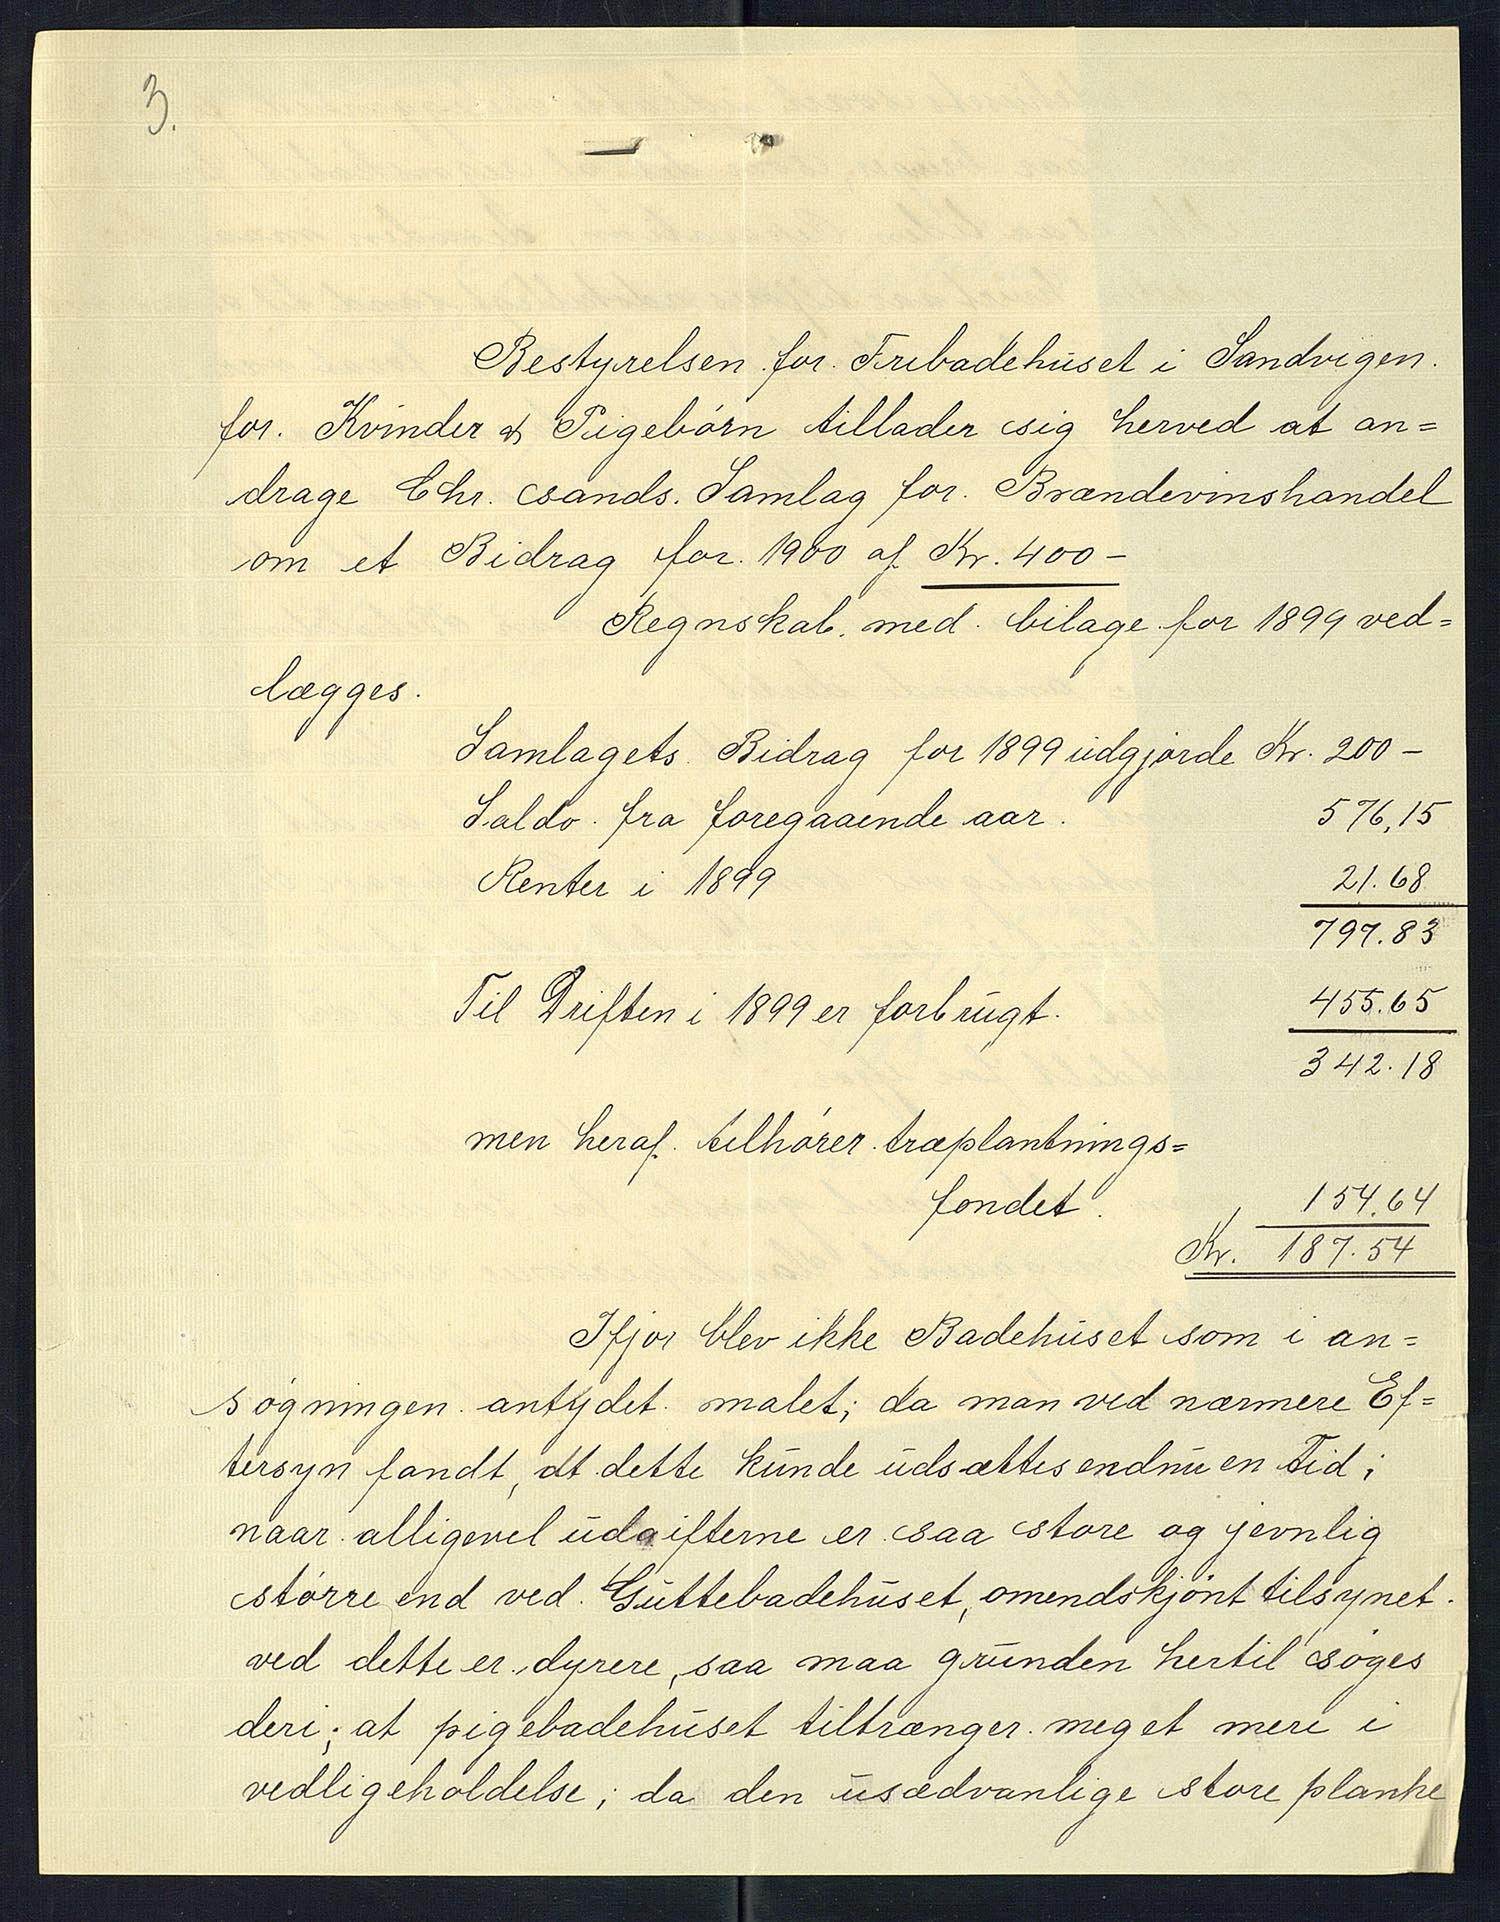 3.
Bestyrelsen for Fribadehuset i Sandvigen
for Kvinder & Pigebörn tillader sig herved at an=
drage Chr. csands. Samlag for Brændevinshandel
om et Bidrag for 1900 af Kr. 400 –
Regnskab med bilage for 1899 ved=
lægges.
Samlagets Bidrag for 1899 udgjörde Kr. 200 –
Saldo fra foregaaende aar. 576,15
Renter i 1899 21.68
797.83
Til Driften i 1899 er forbrugt. 455.65
342.18
men heraf tilhörer træplantnings=
fondet. 154.64
Kr. 187.54
Ifjor blev ikke Badehuset som i an=
søgningen antydet malet; da man ved nærmere Ef=
tersyn fandt, at dette kunde udsættes endnu en Tid;
naar alligevel udgifterne er saa store og jevnlig
större end ved Guttebadehuset, omendskjönt tilsynet
ved dette er dyrere, saa maa grunden hertil søges
deri; at pigebadehuset tiltrænger meget mere i
vedligeholdelse; da den usædvanlige store planke